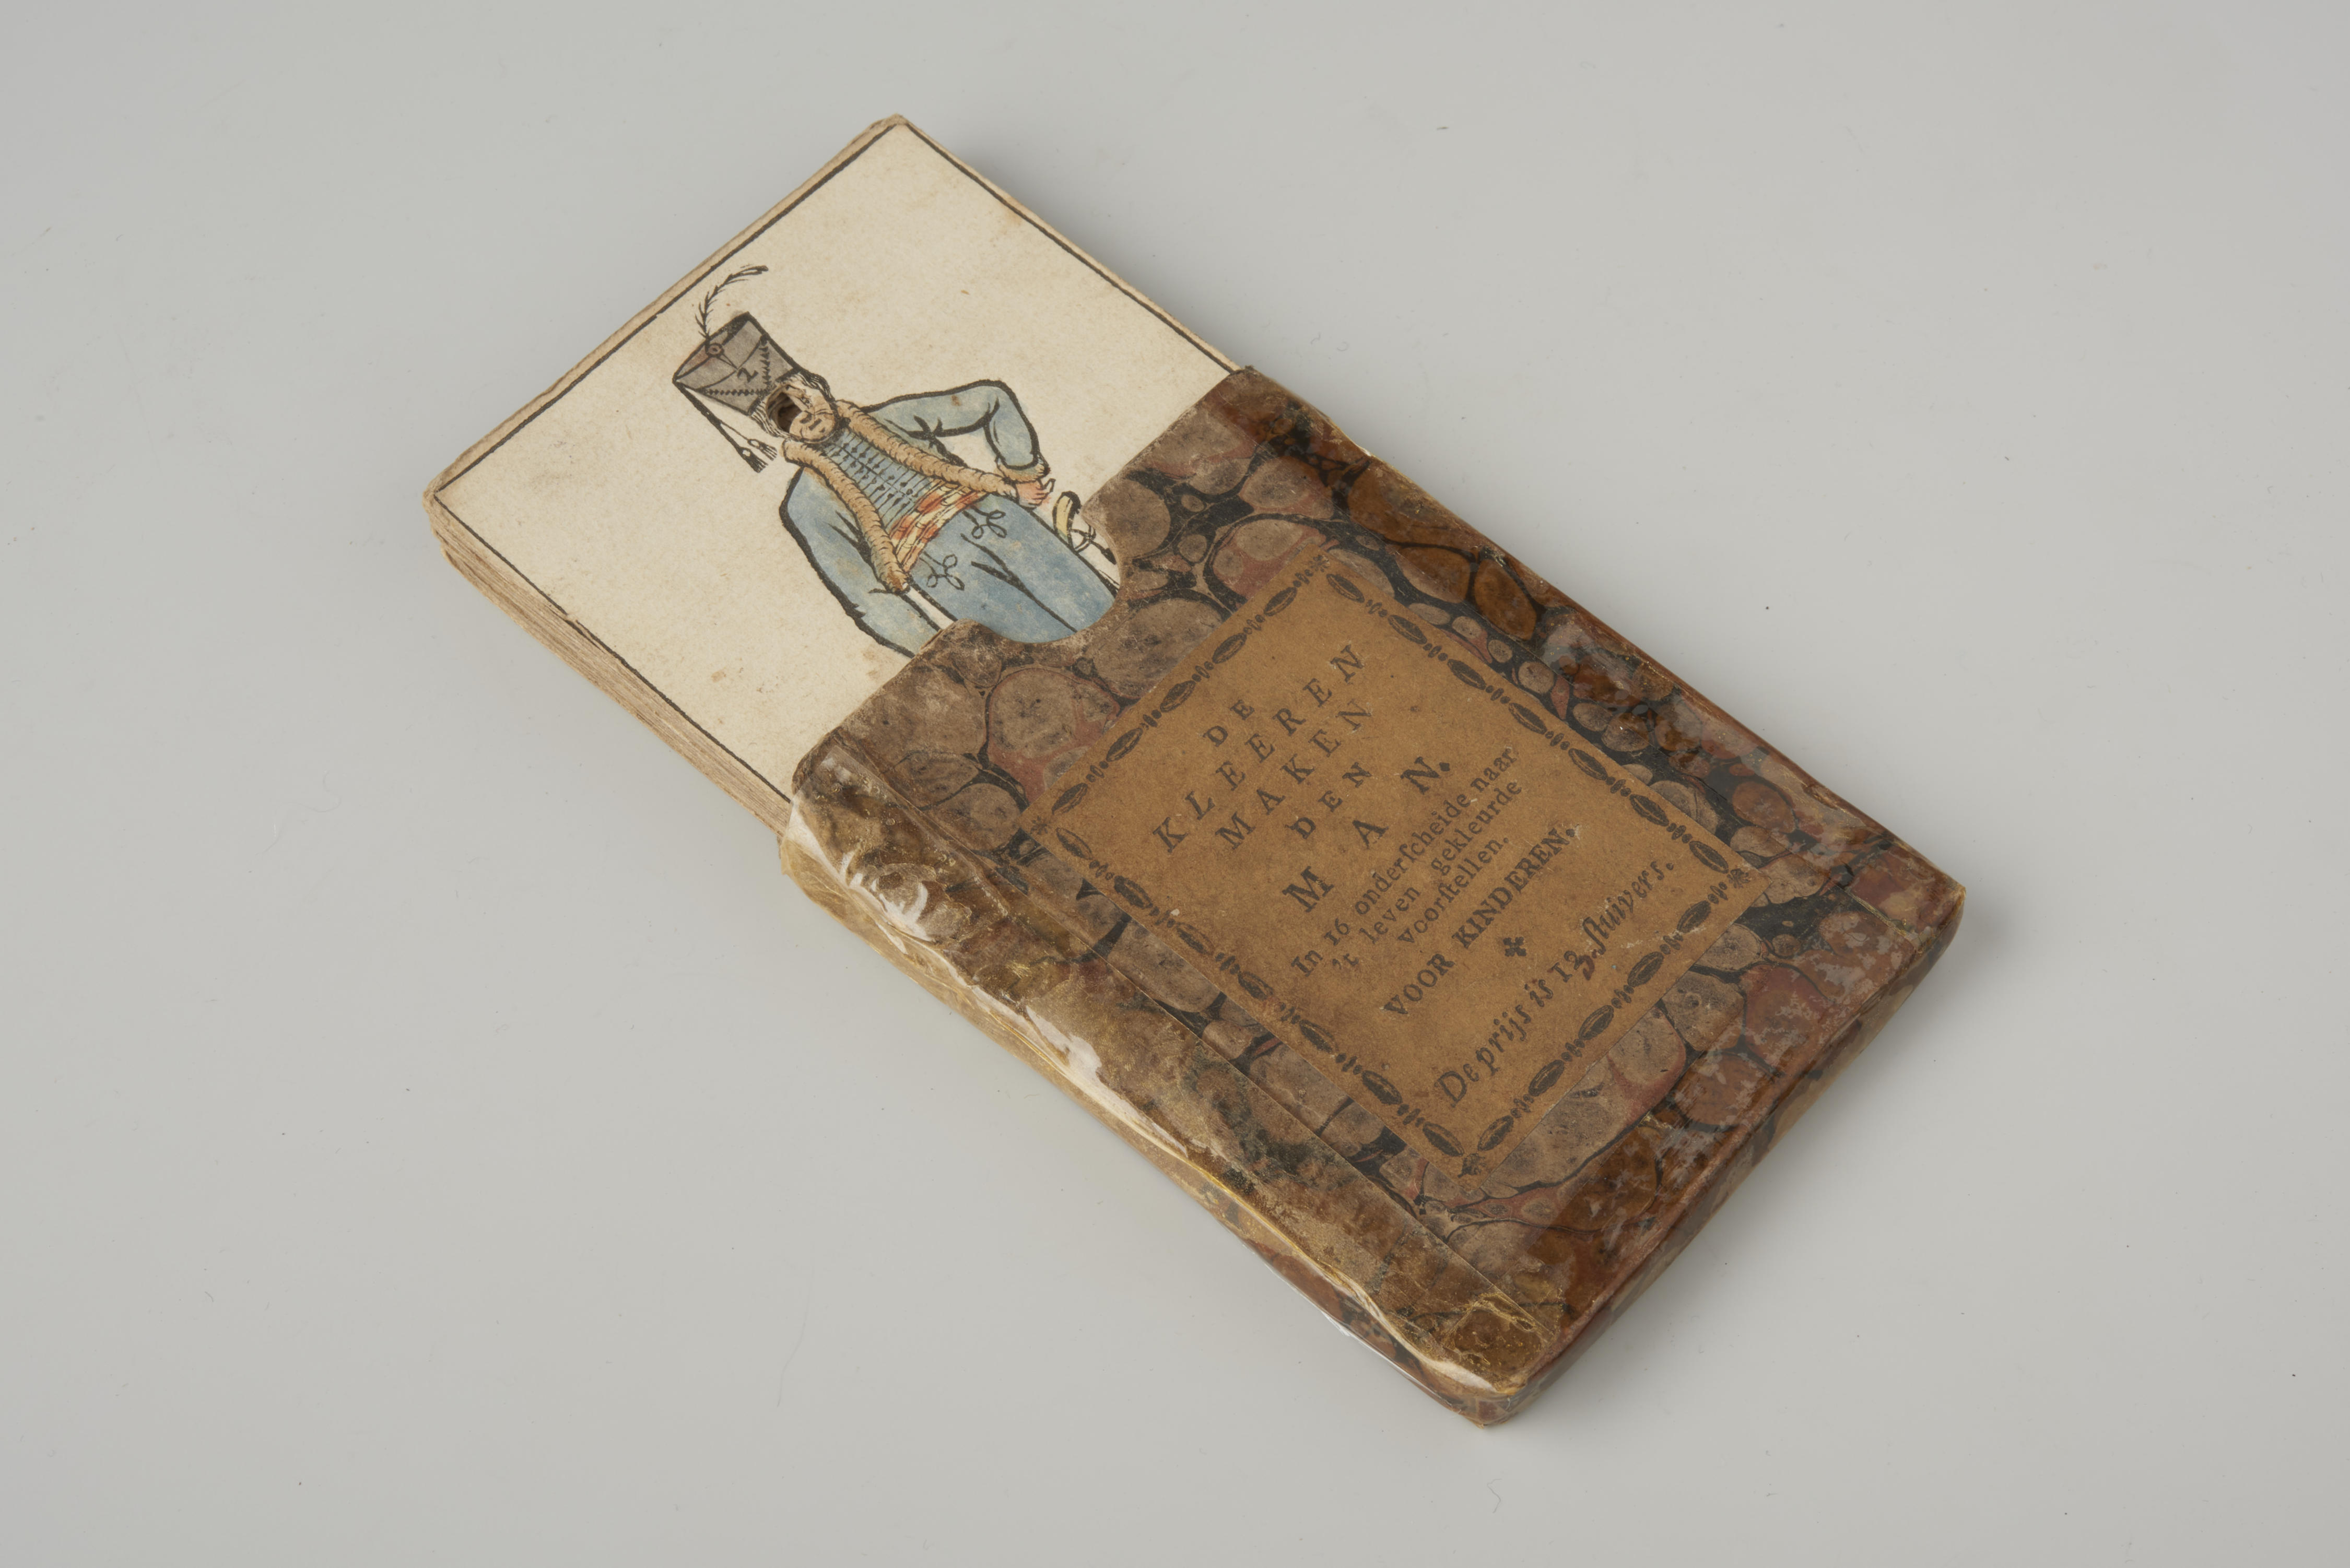 2
DE
KLEEREN
MAKEN
DEN
MAN.
In 16 onderſcheide naar
't leven gekleurde
voorſtellen.
VOOR KINDEREN.
De prijs is 13 ſtuivers.